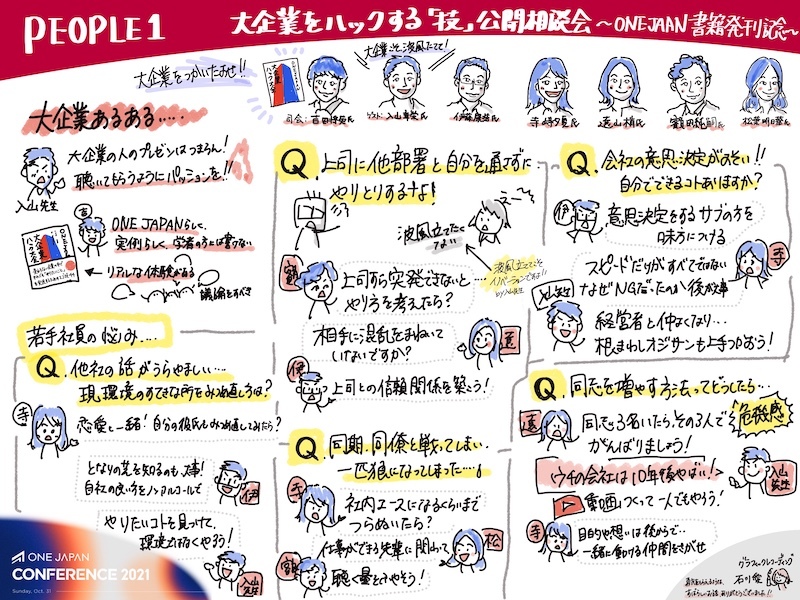 PEOPLE 1
大企業をハックする「技」公開相談会 〜ONEJAPAN書籍発刊記念〜
大企業をつかいたおせ!!
大企業こそ波風たてて!
大企業
ハック大全
司会:
入山章栄氏
伊藤
寺﨑夕夏氏
大企業あるある.....
大企業の人のプレゼンはつまらん!
聴いてもらうようにパッションを!!
入山先生
ONE JAPANらしく、
実例らしく、学者の方には書けない
リアルな体験がある
議論をすべき
大企業
ハック大全
若手社員の悩み....
Q. 他社の話がうらやましい...
現環境のすてきな所をみつめ直し方は?
寺
恋愛と一緒!自分の彼氏もみつめ直してみたら?
となりの芝を知るのも大事!
自社の良い方をノンアルコールで
伊
やりたいコトを見つけて、
環境なげなくやろう!
入山先生
Q. 上司に他部署と自分を通さずに
やりとりするな!
え〜
波風立てたくない
波風立ててこそ
イノベーションですよ!!
by入山先生
上司すら突発できないと...
やり方を考えたら?
相手に混乱をまねいて
いないですか?
遠
伊
上司との信頼関係を築こう!
Q. 同期、同僚と戦ってしまい
一匹狼になってしまった...
寺
社内エースになるくらいまで
つらぬいたら?
仕事ができる先輩に関わって
聴く量をふやそう!
松
Q. 会社の意思決定がおそい!!
自分でできるコトありますか?
伊
意思決定をするサブの方を
味方につける
スピードだけがすべてではない
なぜNGだったのか後が大事
寺
入山先生
経営者と仲よくなり...
根まわしオジサンも上手につかおう!
Q. 同志を増やす方法ってどうしたら...
遠
同志3名いたら、その3人で
がんばりましょう!
危機感
ウチの会社は10年後やばい!
入山先生
動画つくって一人でもやろう!
寺
目的や想いは後からで...
一緒に動ける仲間をさがせ
ONE JAPAN
CONFERENCE 2021
Sunday, Oct. 31
グラフィックレコーディング
石川